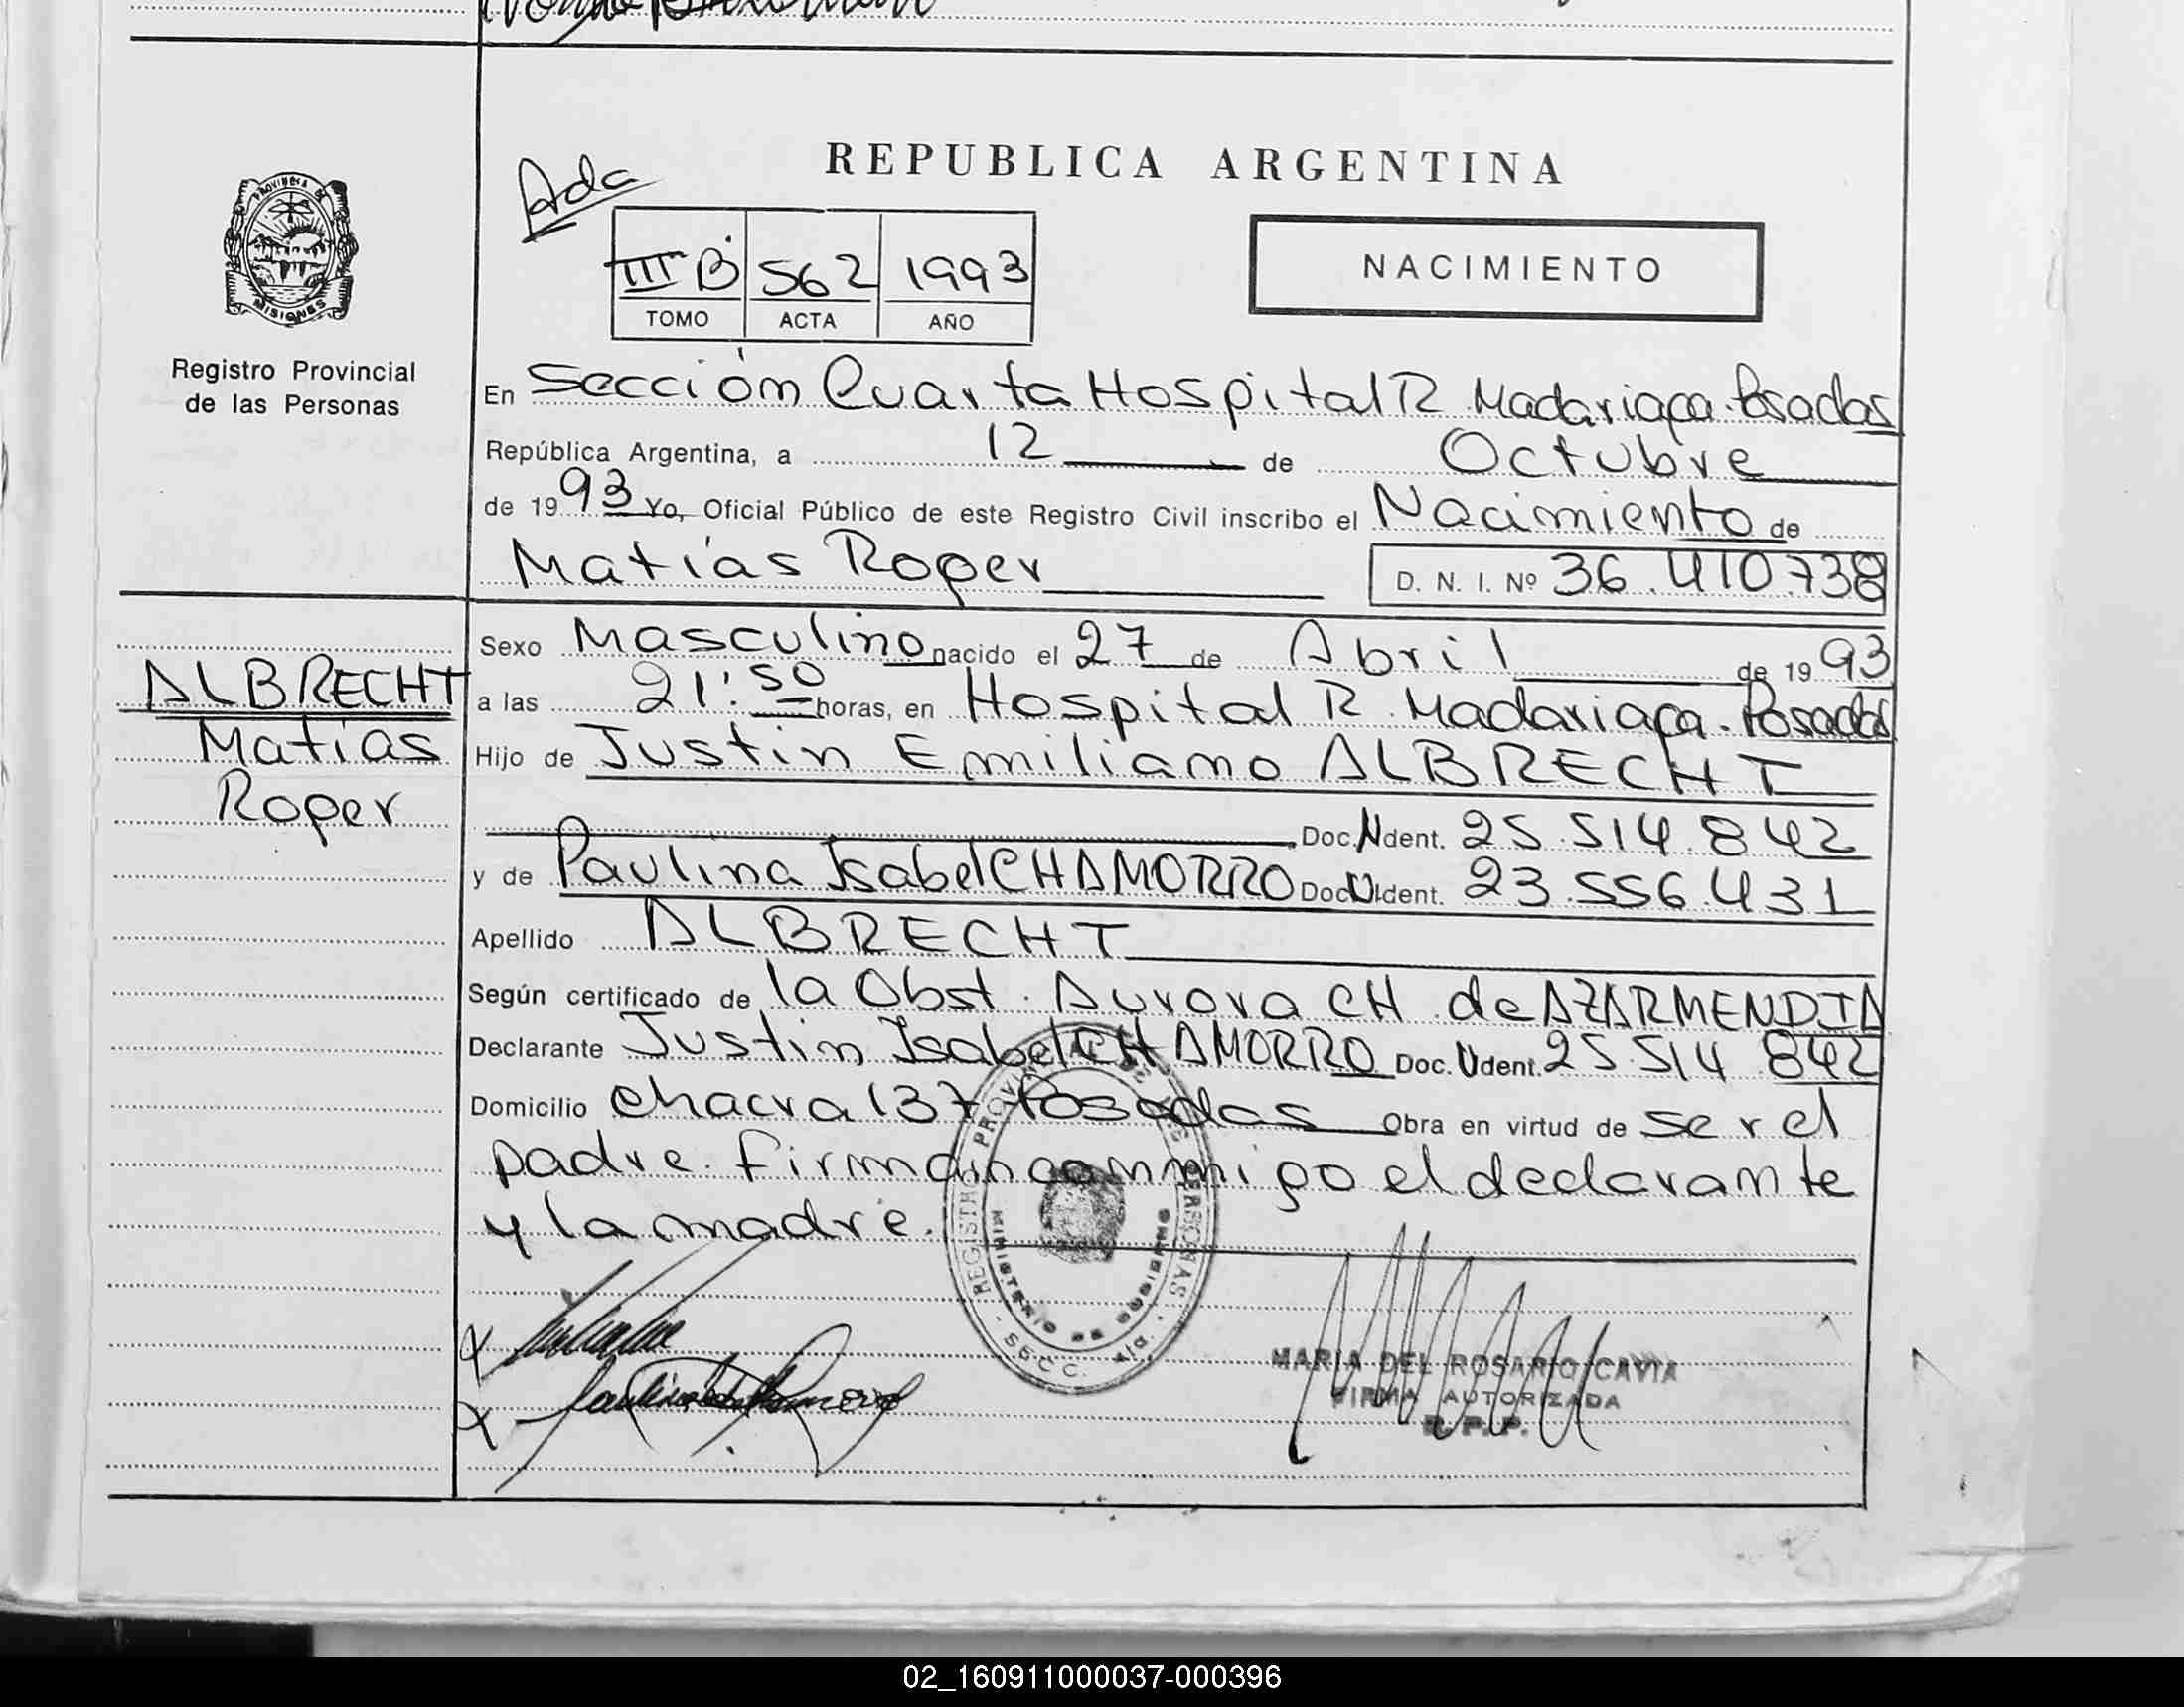 Ada
REPUBLICA ARGENTINA
III B 562 1993
TOMO ACTA AÑO
NACIMIENTO
PROVINCIA DE MISIONES
Registro Provincial
de las Personas
En Sección Cuarta Hospital R. Madariaga. Posadas
República Argentina, a 12 de Octubre
de 1993 Yo, Oficial Público de este Registro Civil inscribo el Nacimiento de
Matías Roper D. N. I. Nº 36.410.738
Sexo Masculino nacido el 27 de Abril de 1993
a las 21:50 horas, en Hospital R. Madariaga. Posadas
Hijo de Justin Emiliano ALBRECHT
Doc. N Ident. 25.514.842
y de Paulina Isabel CHAMORRO Doc. U Ident. 23.556.431
Apellido ALBRECHT
Según certificado de la Obst. Aurora CH de AZARMENDIA
Declarante Justin Isabel CHAMORRO Doc. U Ident. 25.514 842
Domicilio Chacra 137 Posadas Obra en virtud de ser el
padre. firman conmigo el declarante
y la madre.
ALBRECHT
Matías
Roper
REGISTRO PROVINCIAL DE LAS PERSONAS
MINISTERIO DE GOBIERNO
SECC. 4ta.
MARIA DEL ROSARIO CAVIA
FIRMA AUTORIZADA
R.P.P.
02_160911000037-000396